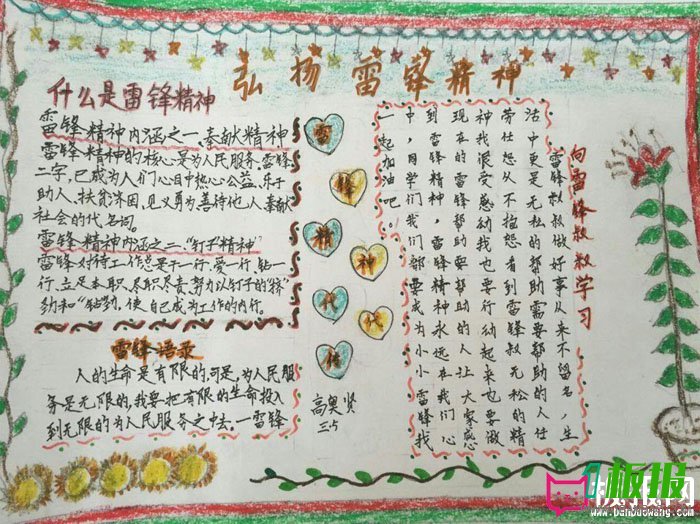 弘扬雷锋精神
什么是雷锋精神
雷锋精神内涵之一奉献精神
雷锋精神的核心是为人民服务.雷锋
二字,已成为人们心目中热心公益,乐于
助人,扶贫济困,见义勇为善待他人,奉献
社会的代名词。
雷锋精神内涵之二,"钉子精神"
雷锋对待工作总是干一行,爱一行,钻一
行,立足本职,尽职尽责,努力以钉子的"挤"
劲和"钻"劲,使自己成为工作的内行。
雷锋语录
人的生命是有限的,可是,为人民服
务是无限的,我要把有限的生命投入
到无限的为人民服务之中去.一雷锋
雷
锋
精
神
高奥贤
三5
向雷锋叔叔学习
雷锋叔叔做好事从来不留名,生
活中更是无松的帮助需要帮助的人任
劳任怨从不抱怨看到雷锋叔无松的精
神我很受感动我也要行动起来也要做
现在的雷锋帮助要帮助的人让大家感
到雷锋精神,雷锋精神永远在我们心
中,同学们我们都要成为小小雷锋我
一起加油吧!
板报网
www.banbaowang.com